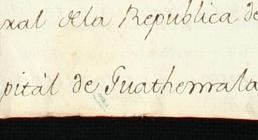 ral dela Republica de
pitál de Guathemala